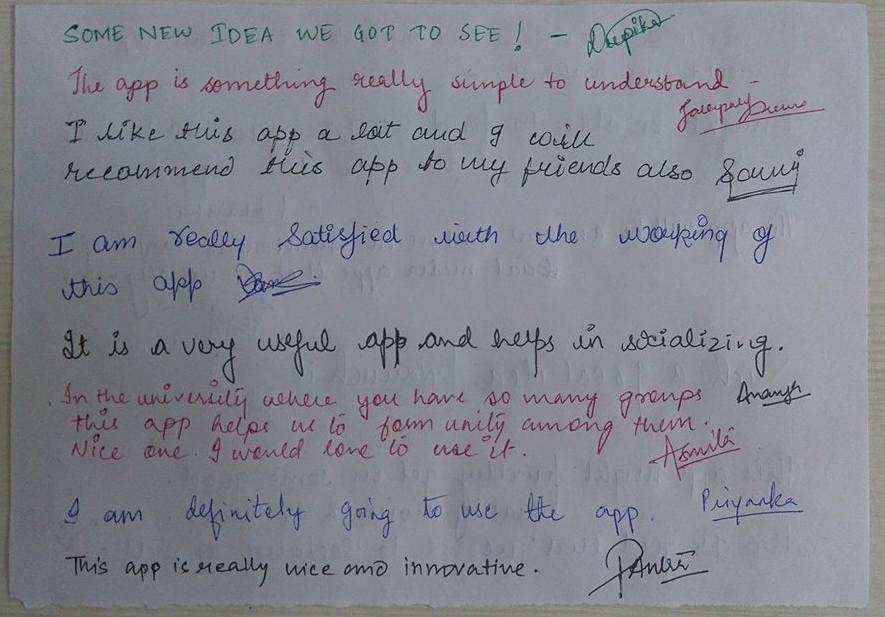 SOME NEW IDEA WE GOT TO SEE! - Deepika
The app is something really simple to understand -
I like this app a lot and I will
recommend this app to my friends also
I am really satisfied with the working of
this app
It is a very useful app and helps in socializing.
In the university where you have so many groups Ananya
this app helps us to form unity among them.
Nice one. I would love to use it. Asmita
I am definitely going to use the app. Priyanka
This app is really nice and innovative.